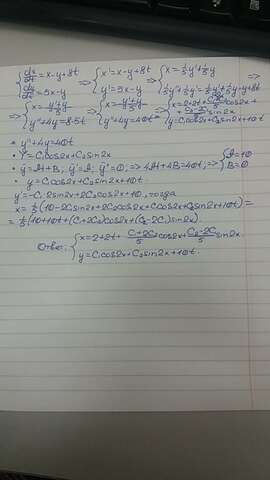 {dx/dt = x-y+8t {x' = x-y+8t {x = 1/5y'+1/5y
{dy/dt = 5x-y => {y' = 5x-y => {1/5y''+1/5y' = 1/5y'+1/5y-y+8t =>
=> {x = (y'+y)/5 => {x = (y'+y)/5 => {x = 2+2t+ (C₁+2C₂)/5 cos2x + (C₂-2C₁)/5 sin2x
{y''+4y = 8·5t {y''+4y = 40t* {y = C₁cos2x+C₂sin2x+10t
* y''+4y = 40t
• Y = C₁cos2x+C₂sin2x
• ỹ = At+B, ỹ' = A; ỹ'' = 0; => 4At+4B = 40t; => {A = 10 {B = 0
• y = C₁cos2x+C₂sin2x+10t
y' = -C₁2sin2x+2C₂cos2x+10, тогда
x = 1/5(10-2C₁sin2x+2C₂cos2x+C₁cos2x+C₂sin2x+10t) =
= 1/5(10+10t+(C₁+2C₂)cos2x+(C₂-2C₁)sin2x)
Ответ: {x = 2+2t+ (C₁+2C₂)/5 cos2x+ (C₂-2C₁)/5 sin2x.
{y = C₁cos2x+C₂sin2x+10t.